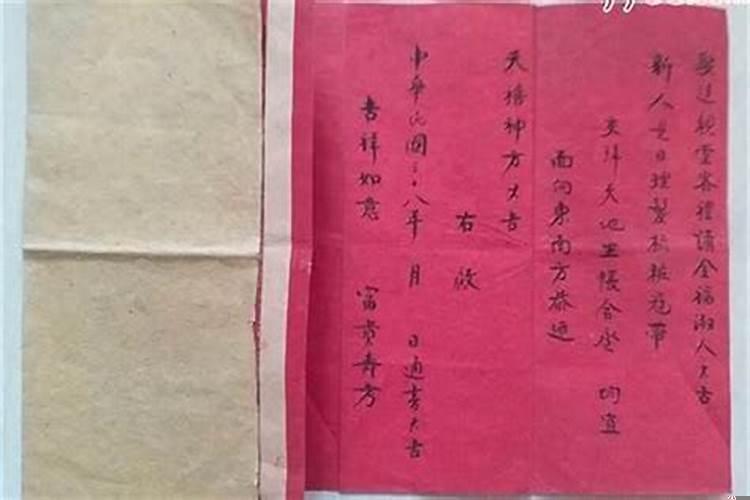 娶送親堂客禮請全福淑人大吉
新人是日理髮梳粧冠帶
交拜天地坐帳合卺 均宜
面向東南方恭迎
天橋神方大吉
右啟
中華民國三十八年 月 日通書大吉
吉祥如意 富貴壽方